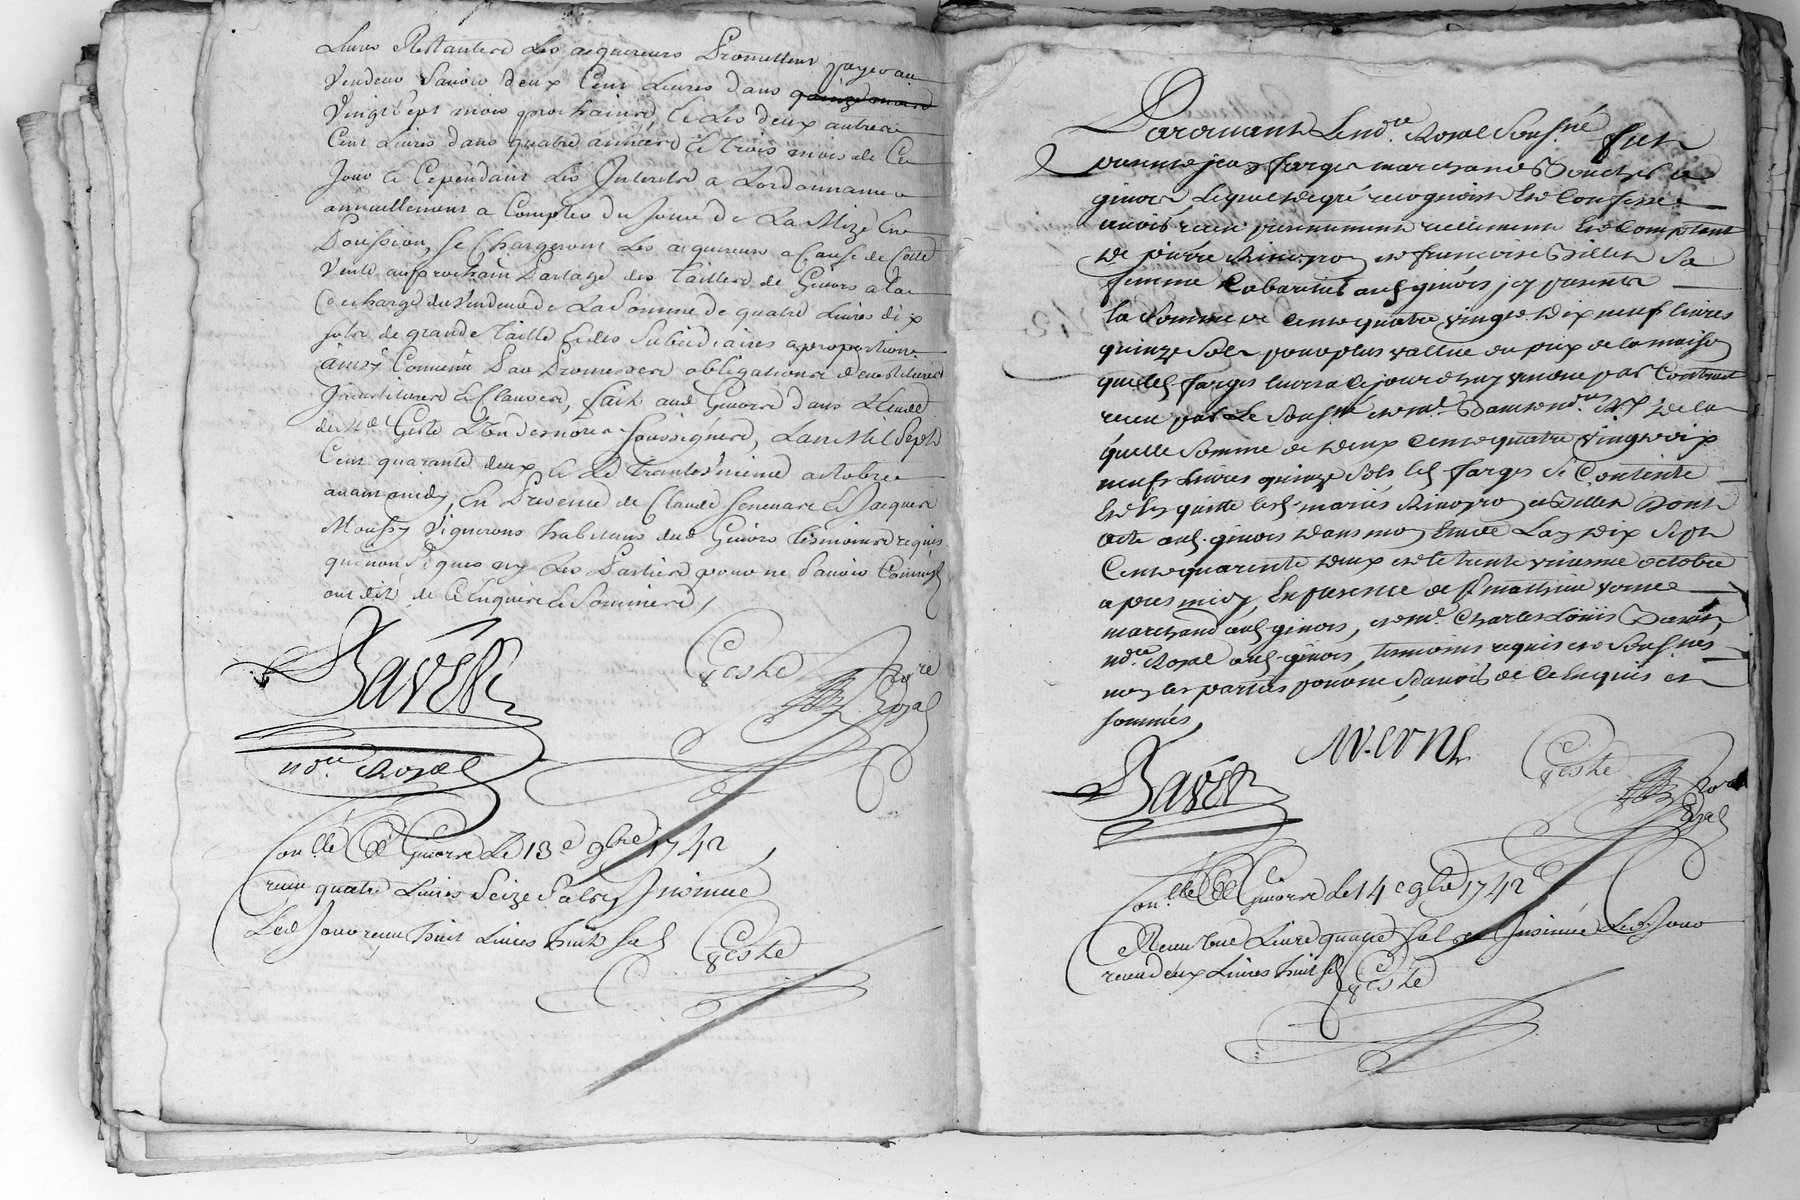 Livres Restantes les acquereurs Promettent payer au
Vendeur Savoir deux Cent Livres dans quinze mois
Vingt Sept mois prochains, Et les deux autres
Cent Livres dans quatre années Et trois mois de Ce
Jour Et Cependant Les Interets a Lordonnance
annuellement a Compter du Jour de La Mize En
Poussion, Se Chargeront Les acquereurs a Cause de Cette
Vente au prochain Partage des Tailles de Givors a la
décharge du Vendeur de La Somme de quatre Livres dix
sols de grande Taille Et des Subsidiaires a proportion
ainsy Convenu Par Promesses obligations
Et Clauses, fait aud Givors dans L'Etude
de Me Geste L'un des nores Soussignés, Lan Mil Sept
Cent quarante deux Et Le Trante Unieme octobre
avant midy, En Presence de Claude Et Jacques
Vignerons habitans dud Givors temoins requis
qui non Signes ny Les Parties pour ne Savoir Comme ils
ont dit de Ce Enquis Et Sommés,
Bavet
Geste
nore
Royal
no.re Royal
Con.llé à Givors Le 13e 9bre 1742
receu quatre Livres Seize Sols, Insinué
Led Jour receu huit Livres huit sols
Geste
Pardevant Le no.re Royal Sousné fut
present jean farges marchand Boucher de
givors, Lequel de gré recognoist Et Confesse
avoir receu presentement reellement Et Comptant
de pierre et francoise Billet Sa
femme Cabaretiers aud. givors jcy presents
la Somme de Cent quatre vingt dix neuf livres
quinze Sols pour plus vallue du prix de la maison
que led farges leurs a Cejourd'huy vendue par Contract
receu par Le Sousné et me. de la
quelle Somme de Cent quatre vingt dix
neuf Livres quinze Sols led. farges Se Contente
Et En quitte lesd. mariés et Billet Dont
acte aud. givors dans mon Etude Lan dix Sept
Cent quarente deux et le trente unieme octobre
apres midy, En presence de Sr. mathieu verne
marchand aud. givors, et me. Charles Louis Bavet,
no.re Royal aud. givors, temoins requis et Sousnés
non les parties pour ne Scavoir de Ce Enquis et
Sommés,
M. verne
Bavet
Geste
nore
Royal
Con.llé à Givors Le 14e 9bre 1742
Receu une Livre quatre sols Insinué Led. Jour
receu deux Livres huit sols
Geste